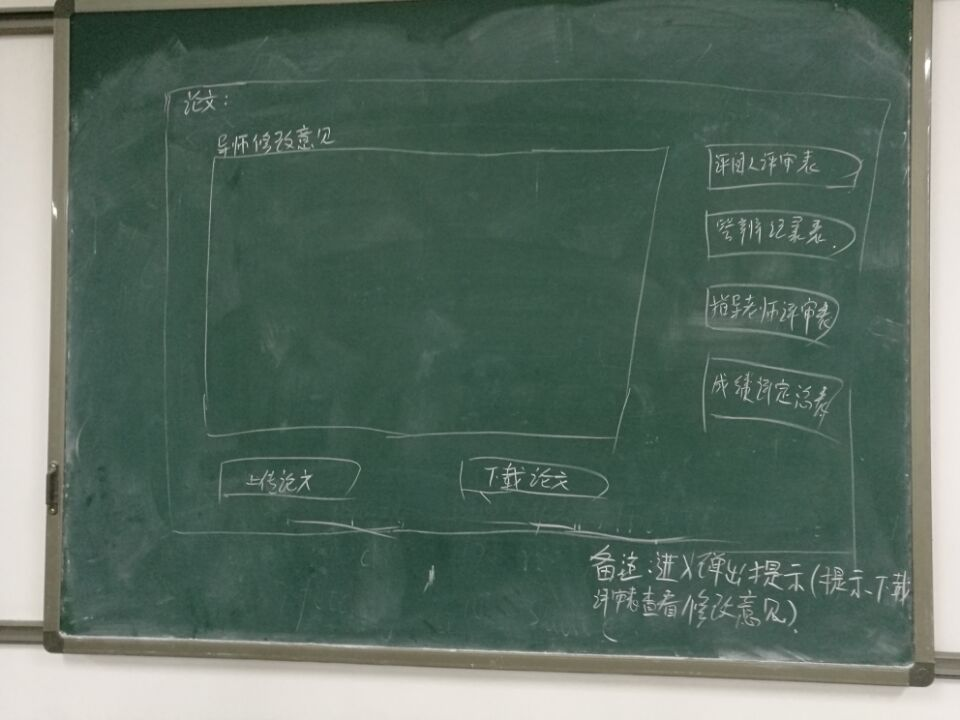 论文:
导师修改意见
评阅人评审表
答辩记录表.
指导老师评审表
成绩评定总表
上传论文
下载论文
备注:进入弹出提示(提示、下载
评审表查看修改意见)